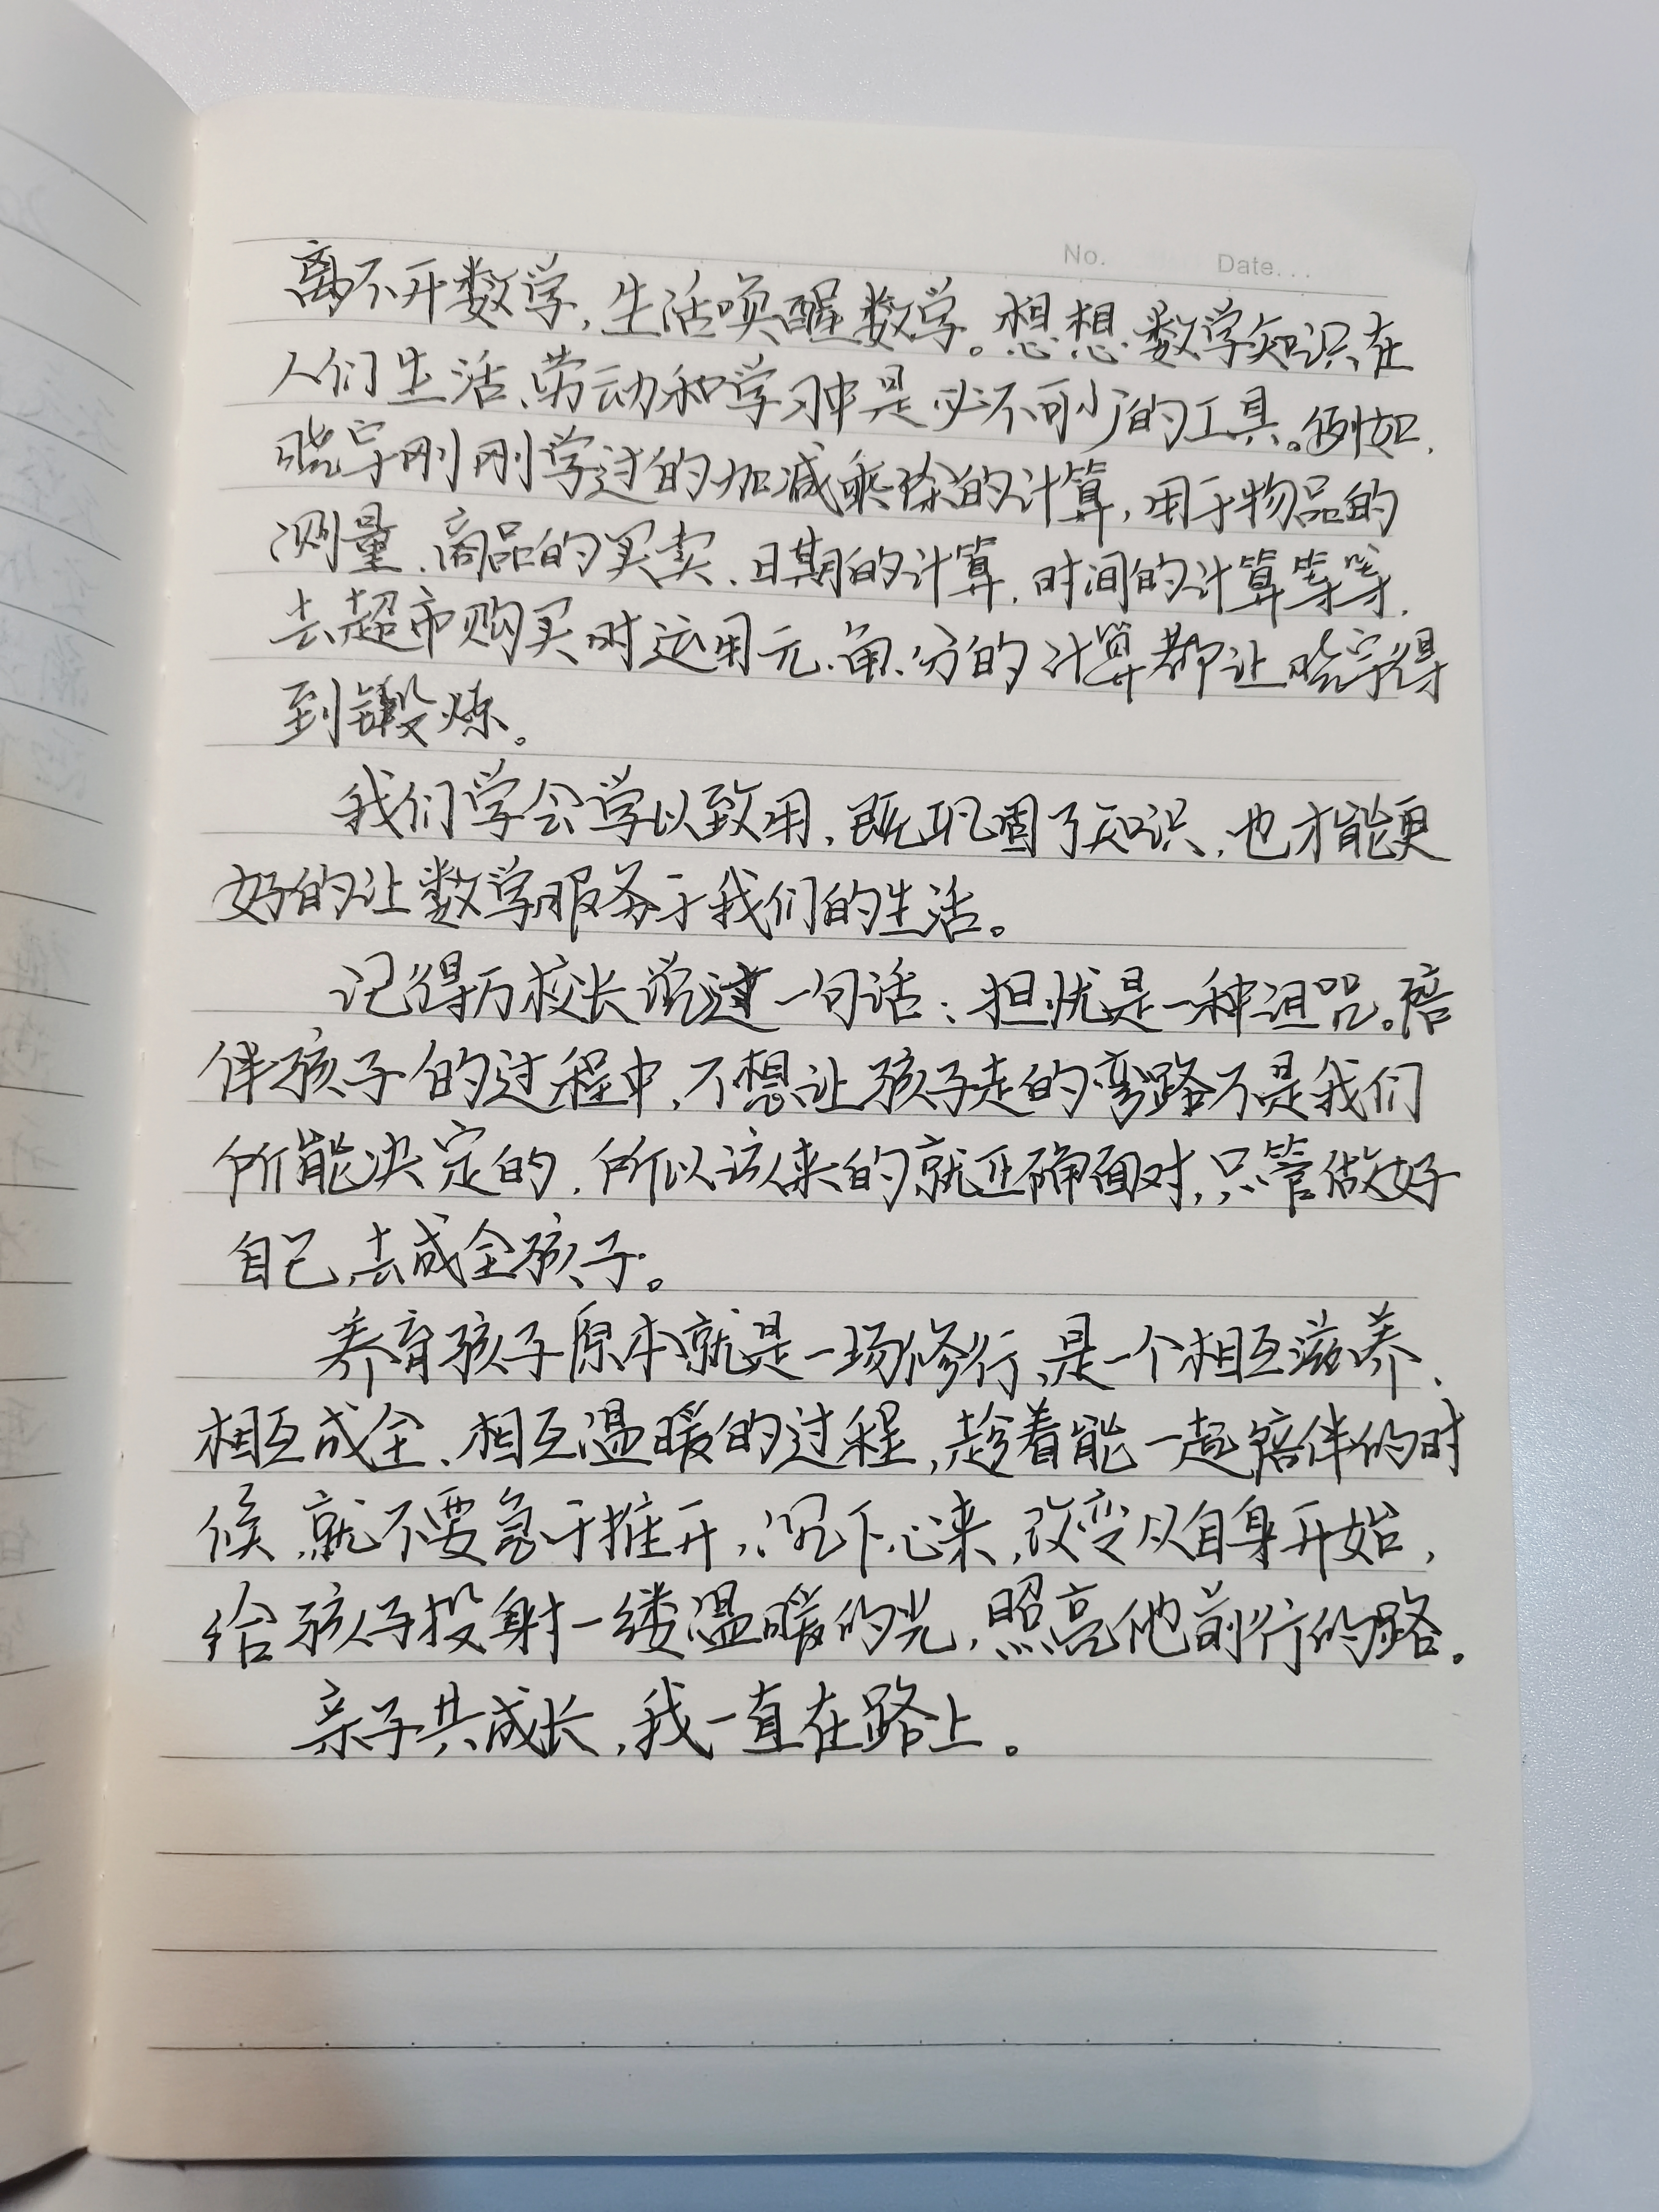 No.    Date...
离不开数学,生活唤醒数学。想想数学知识在
人们生活、劳动和学习中是必不可少的工具。例如,
晓宇刚刚学过的加减乘除的计算,用于物品的
测量、商品的买卖、日期的计算,时间的计算等等,
去超市购买时运用元、角、分的计算都让晓宇得
到锻炼。
我们学会学以致用,既巩固了知识,也才能更
好的让数学服务于我们的生活。
记得万校长说过一句话:担忧是一种诅咒。陪
伴孩子的过程中,不想让孩子走的弯路不是我们
所能决定的,所以该来的就正确面对,只管做好
自己,去成全孩子。
养育孩子原本就是一场修行,是一个相互滋养、
相互成全、相互温暖的过程,趁着能一起陪伴的时
候,就不要急于推开,沉下心来,改变从自身开始,
给孩子投射一缕温暖的光,照亮他前行的路。
亲子共成长,我一直在路上。